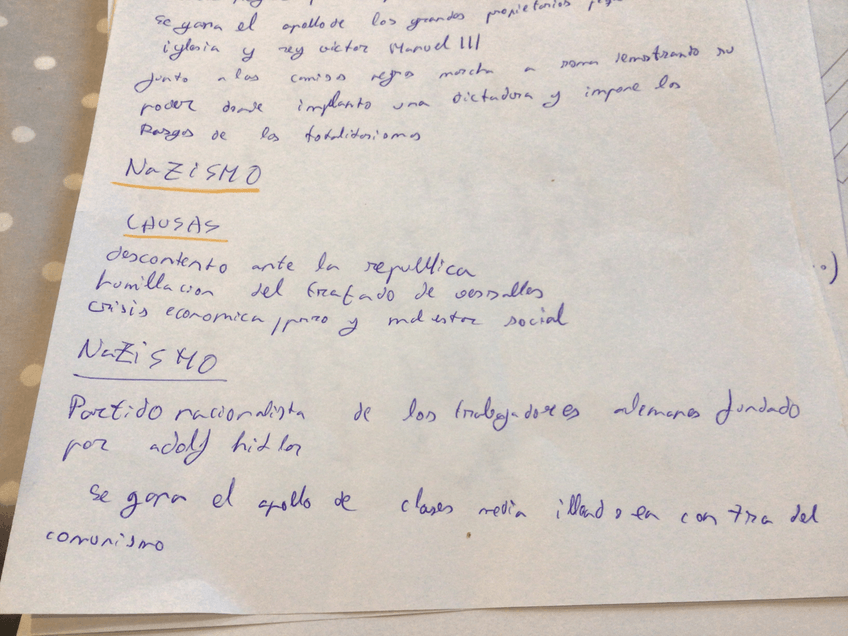 se gana el apollo de los grandes propietarios
iglesia y rey victor Manuel III
junto a las camisas negras marcha a roma demostranto su
poder donde implanto una dictadora y impone los
Razgos de los totalitarismos
NaZiSMO
CAUSAS
descontento ante la republica
humillacion del tratado de versalles
crisis economica, paro y malestar social
NaZiSMO
Partido nacionalista de los trabajadores alemanes fundado
por adolf hitler
se gana el apollo de clases media en contra del
comunismo